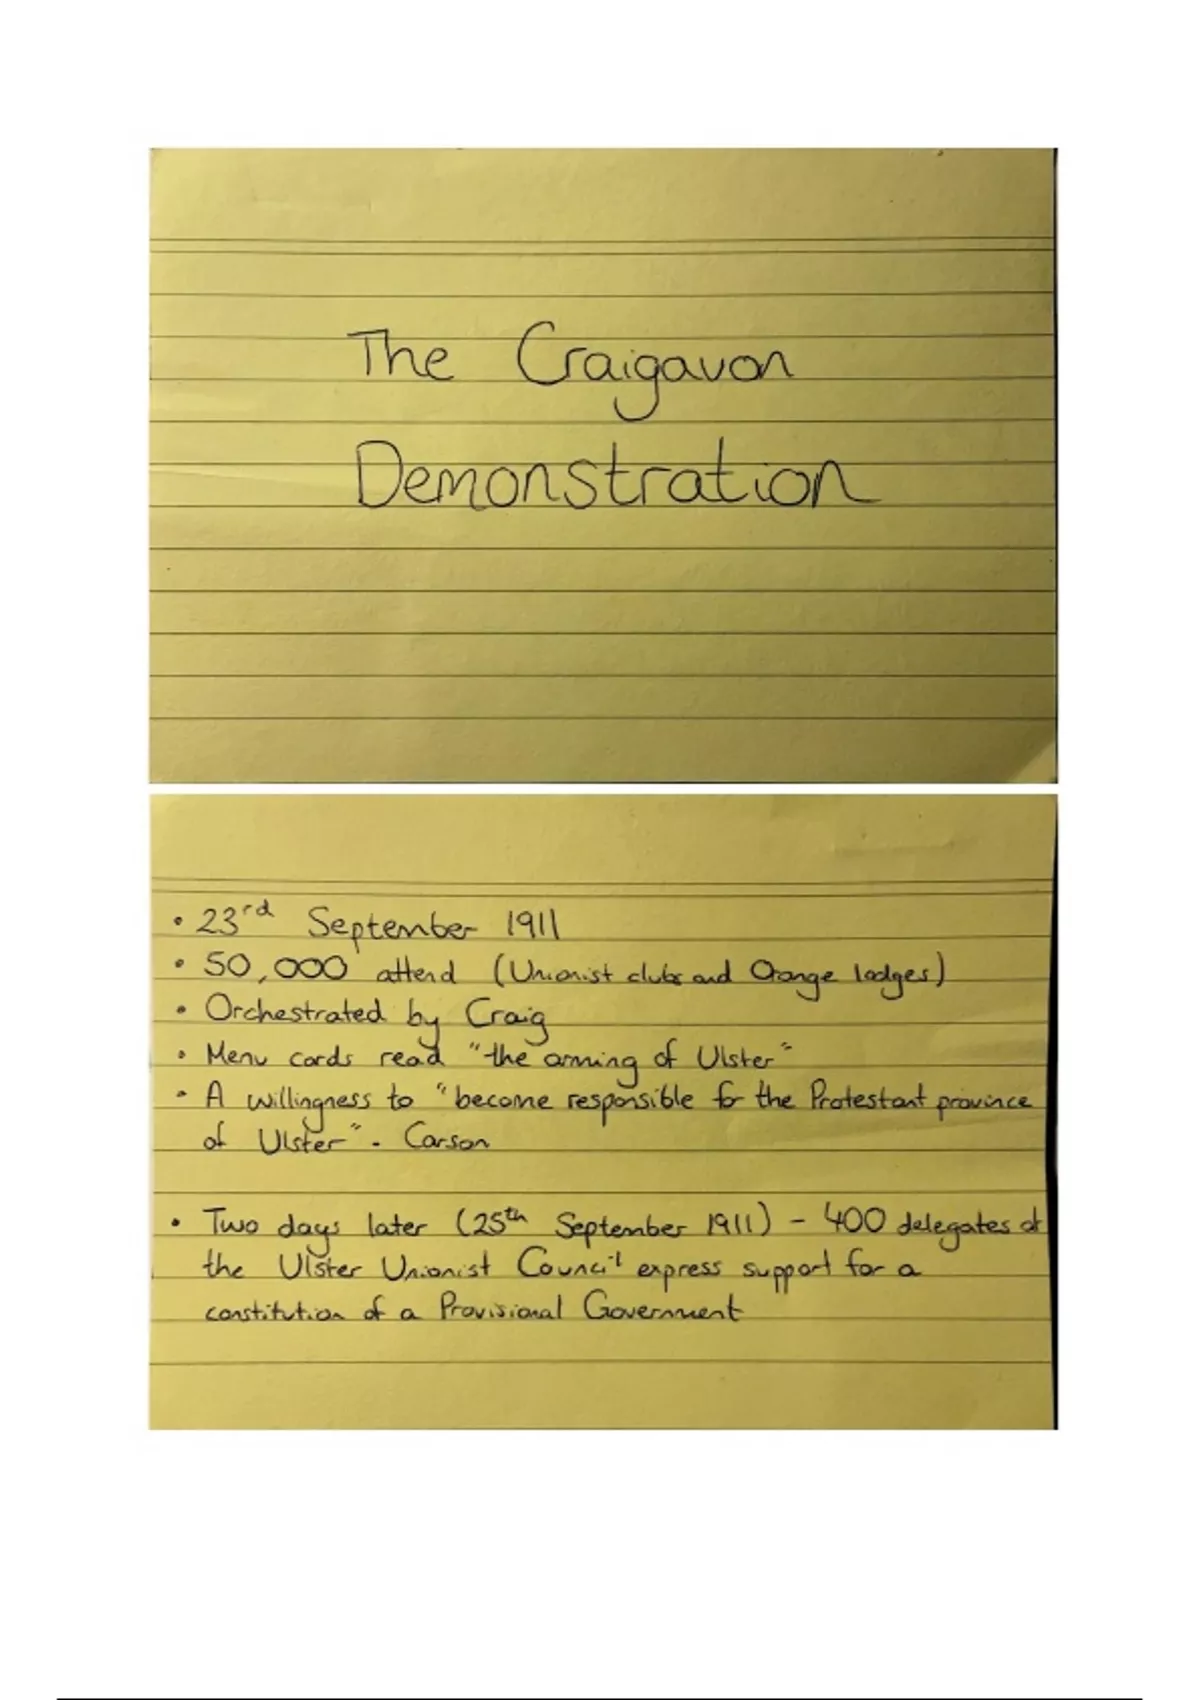 The Craigavon
Demonstration
• 23rd September 1911
• 50,000 attend (Unionist clubs and Orange lodges)
• Orchestrated by Craig
• Menu cards read "the arming of Ulster"
• A willingness to "become responsible for the Protestant province
of Ulster" - Carson
• Two days later (25th September 1911) - 400 delegates at
the Ulster Unionist Council express support for a
constitution of a Provisional Government